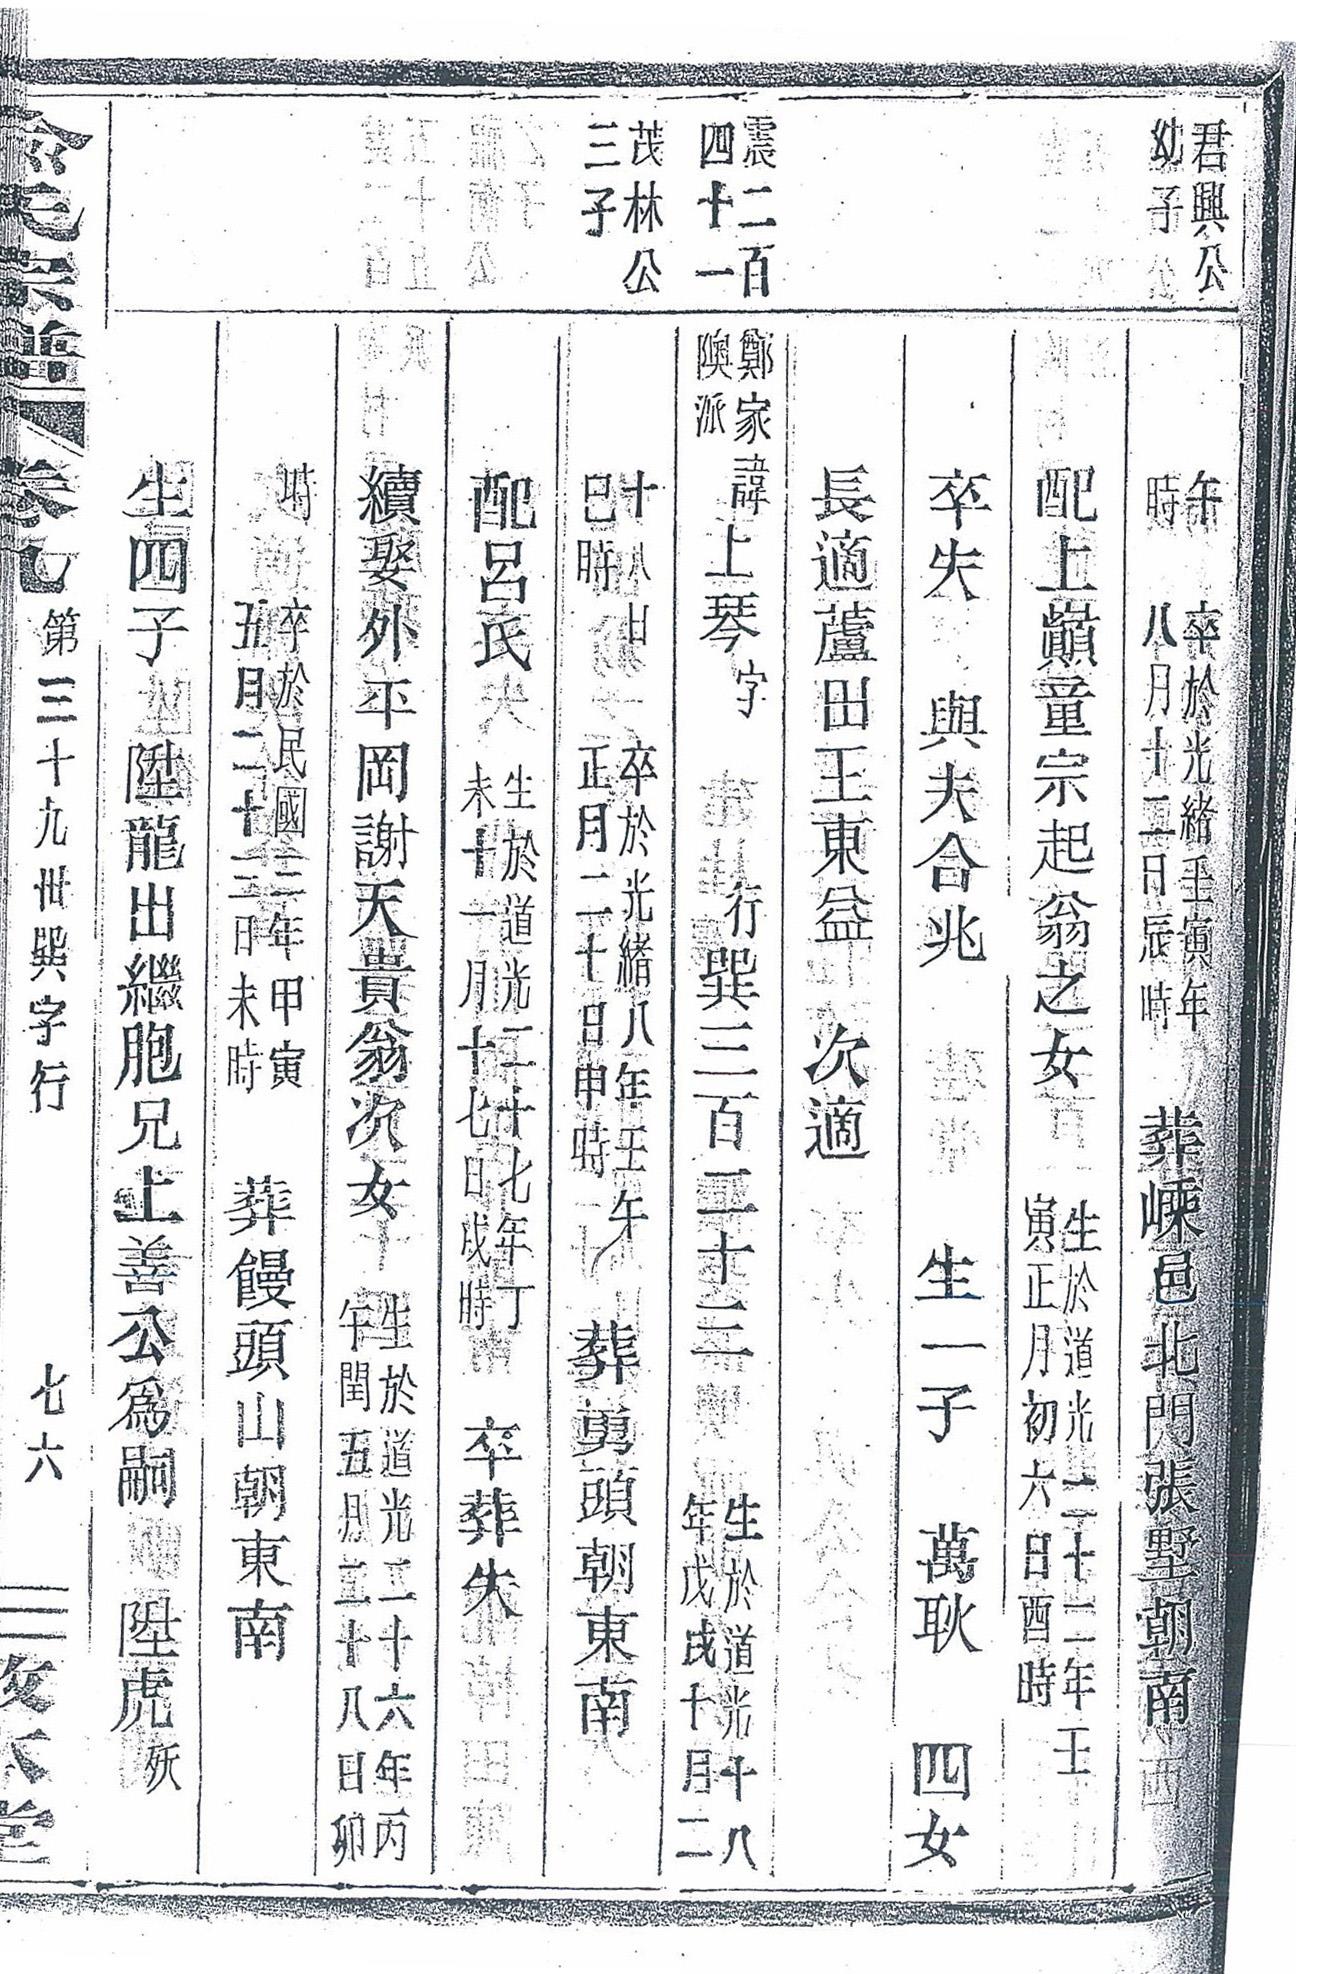 君興公
幼子
午
時
卒於光緒壬寅年
八月十二日辰時
葬嵊邑北門張墅朝南
配上巔童宗起翁之女
生於道光二十二年壬
寅正月初六日酉時
卒失 與夫合兆 生一子 萬耿 四女
長適蘆田王東益 次適
震二百
四十一
鄭家
隩派
諱上琴 字 行巽三百二十二
生於道光十八
年戊戌十月二
茂林公
三子
十八日
巳時
卒於光緒八年壬午
正月二十日申時
葬剪頭朝東南
配呂氏
生於道光二十七年丁
未十一月十七日戌時
卒葬失
續娶外平岡謝天貴翁次女
生於道光二十六年丙
午閏五月二十八日卯
時
卒於民國三年甲寅
五月二十三日未時
葬饅頭山朝東南
生四子 陞龍出繼胞兄上善公爲嗣 陞虎殀
俞氏宗譜 卷九 第三十九世巽字行 七六 敦本堂